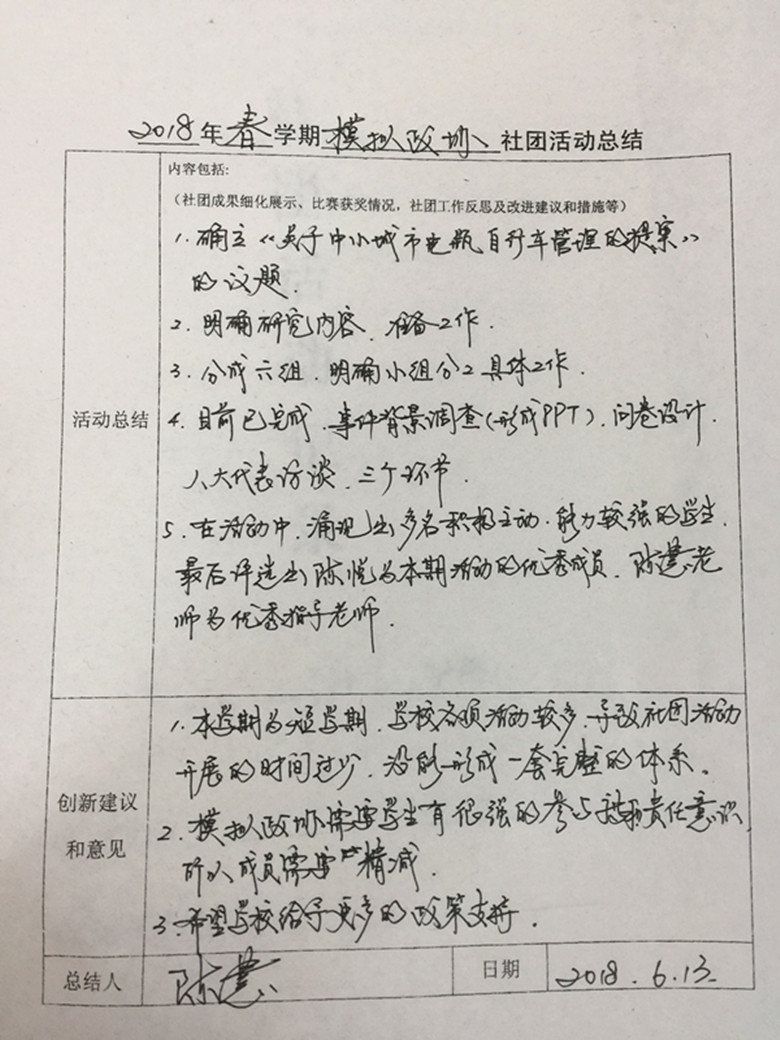 2018年春学期模拟政协社团活动总结
内容包括:
(社团成果细化展示、比赛获奖情况，社团工作反思及改进建议和措施等)
1. 确立《关于中小城市电瓶自行车管理的提案》
的议题.
2. 明确研究内容、准备工作.
3. 分成六组. 明确小组分工具体工作.
活动总结
4. 目前已完成、事件背景调查(形成PPT)、问卷设计.
人大代表访谈、三个环节.
5. 在活动中、涌现出多名积极主动.能力较强的学生.
最后评选出陈悦为本期活动的优秀成员. 陈慧老
师为优秀指导老师.
1. 本学期为短学期. 学校各项活动较多. 导致社团活动
开展的时间过少. 没能形成一套完整的体系。
创新建议
和意见
2. 模拟政协需要学生有很强的参与和责任意识
所以成员需要"精减.
3. 希望学校给予更多的政策支持.
总结人 陈慧 日期 2018.6.13.